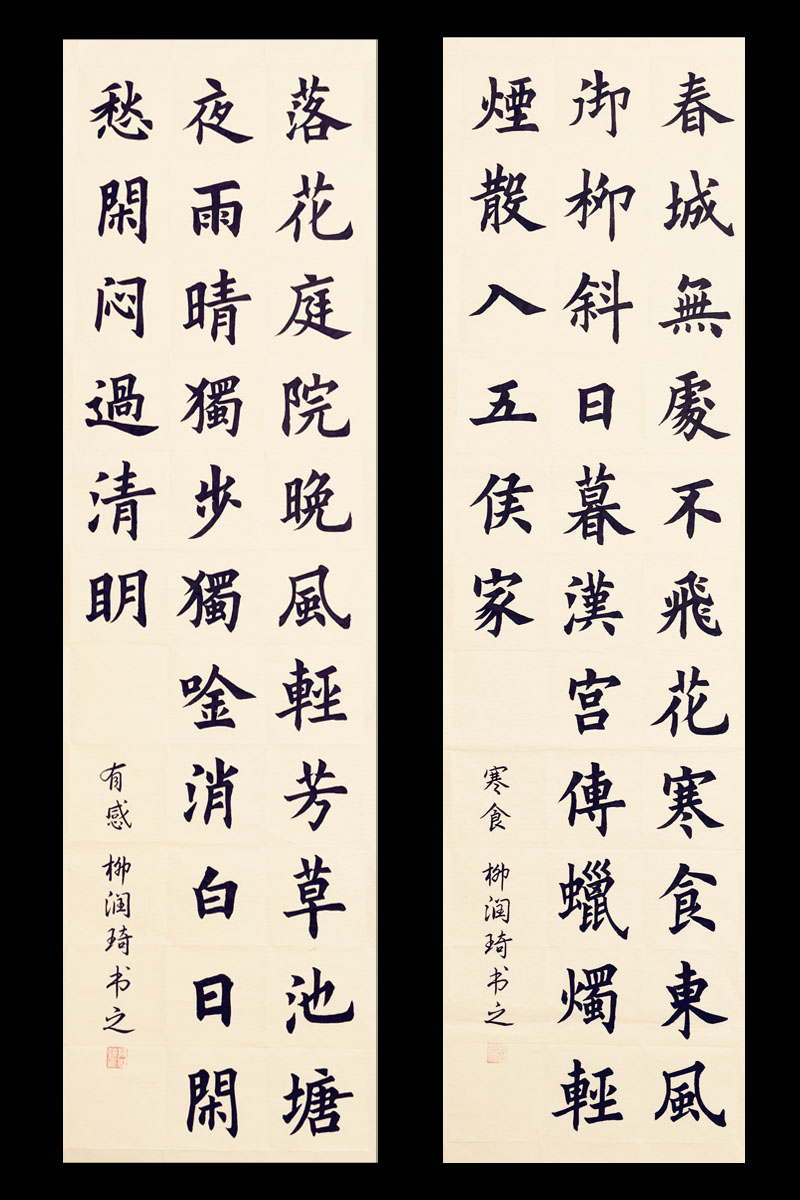 春城無處不飛花寒食東風
御柳斜日暮漢宮傳蠟燭輕
煙散入五侯家
寒食 柳润琦书之
落花庭院晚風輕芳草池塘
夜雨晴獨步獨唫消白日閑
愁閑闷過清明
有感 柳润琦书之